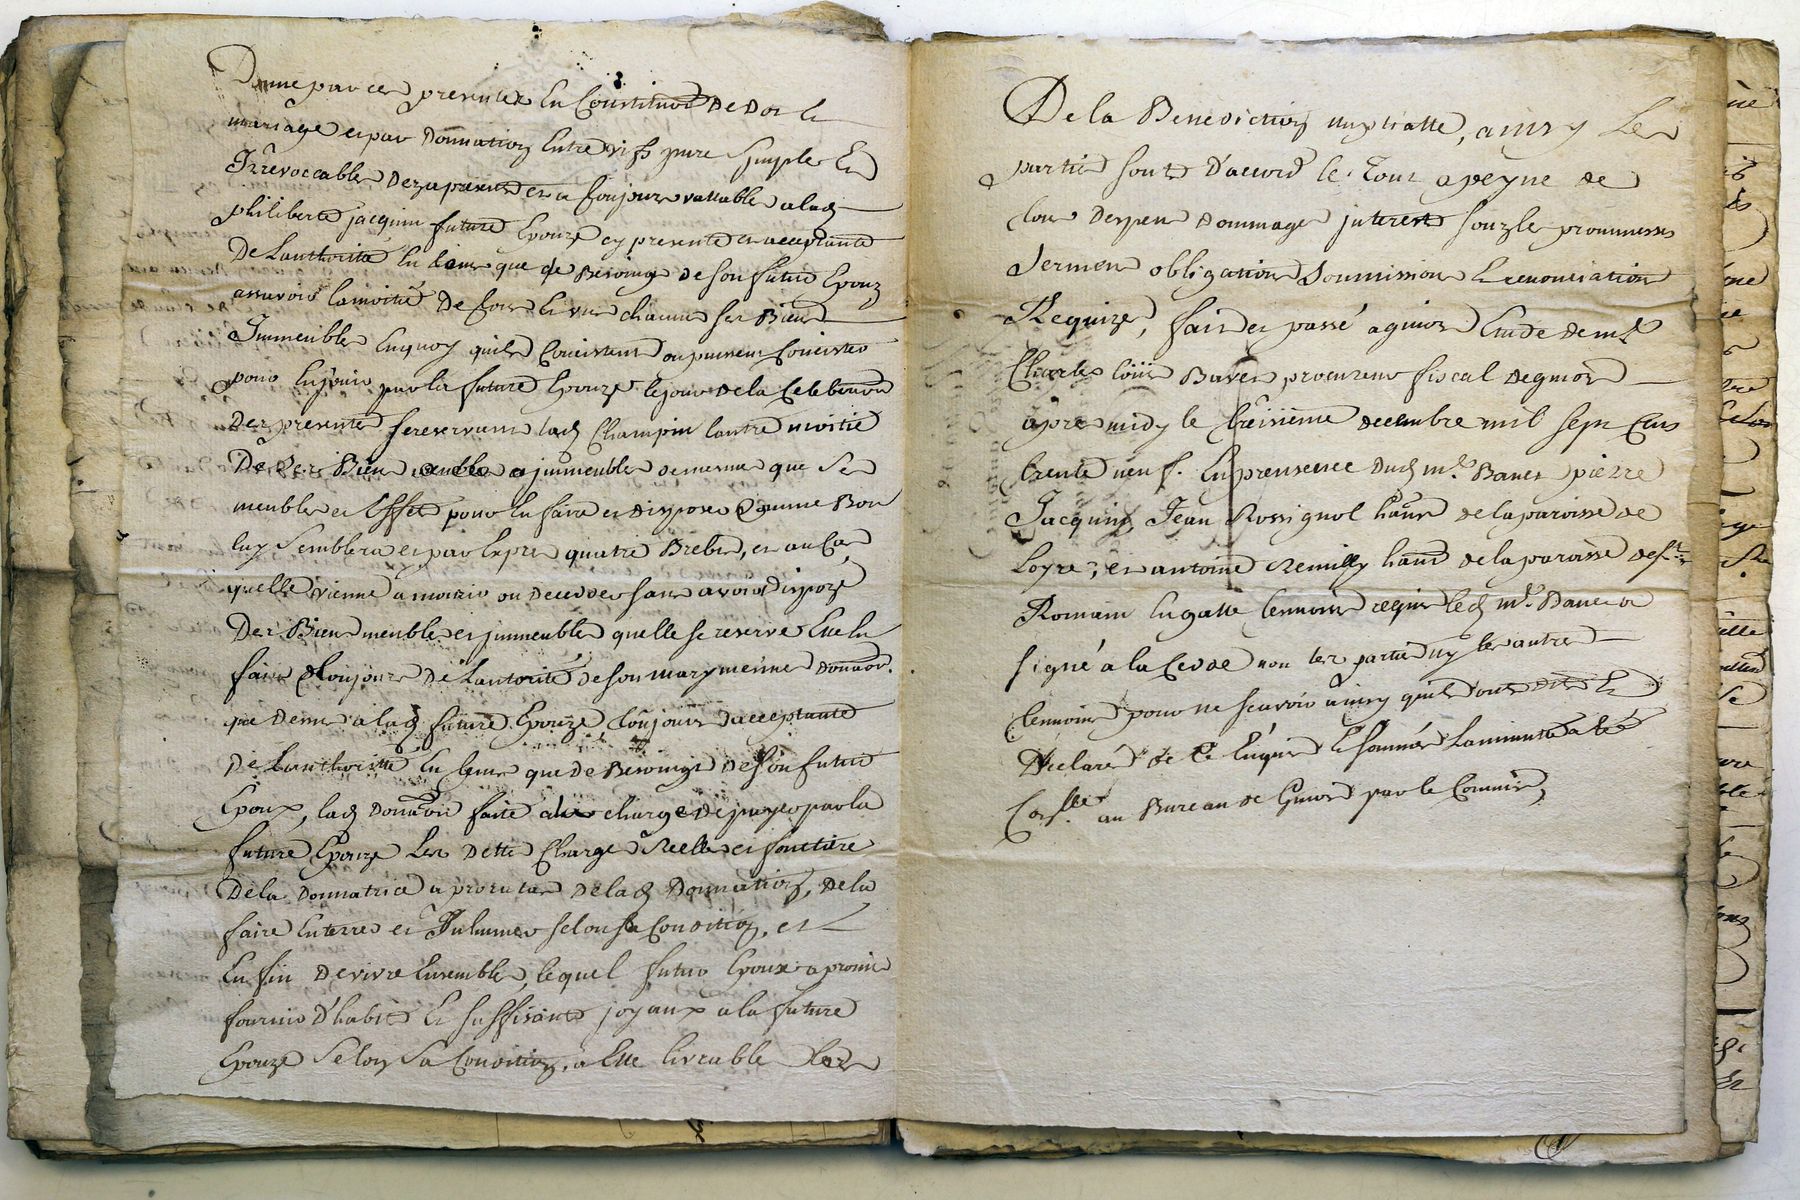 Donne par ces presentes En Constitution De Dot Et
mariage et par Donnation Entre vifs pure simple Et
Irrevoccable Dez a present et a toujours vallable a lad
philiberte jacquin future Epouze cy presente et acceptante
De Lauthorité En tems que de Besoings De son futur Epoux
assavoir lamoitié De tous Et uns chacuns ses Biens
Immeubles Enquoy quils Concistent ou puissent Concister
pour Enjouir par la future Epouze le jour de la Celebration
Des presentes se reservant lad Champin lautre moitié
De ses Biens immeubles de mesme que Ses
meubles et Effets pour En faire et Disposer Comme Bon
luy Semblera et par Expres quatre Brebis, et au Cas
quelle vienne a mourir ou Deceder sans avoir Dispozé
Des Biens meubles et jmmeubles quelle se reserve Elle En
fait toujours De Lautorité de son mary mesme donnaon.
que Dessus a lad future Epouze, toujours acceptante
De Lauthorité En tems que De Besoings De son futur
Epoux, lad Donnaon faite a la charge De payer par la
future Epouze Les Dettes Charges Reelles et fonctiere
De la Donnatrice a prorata De lad Donnation, De la
faire Enterrer et Inhumer selon sa Condition, et
En fin De vivre Ensemble, lequel futur Epoux a promis
fournir D'habits Et suffisants joyaux a la future
Epouze Selon Sa Condition, a Elle livrable lors
De la Benediction nuptialle, ainsy Les
parties sont D'accord le Tout a peyne de
tous Despens Dommages jnterests souz les prommesses
sermens obligations Soumissions Et renonciations
Requizes, fait et passé a givors Etude de mr
Charles Louis Baver procureur fiscal de givors
apres midy le treisieme decembre mil sept Cens
trente neuf. En presence dud mr. Baver pierre
Jacquin, Jean Rossignol hants de la paroisse de
Loyre, et antoine Remilly hant de la paroisse de st
Romain En galle temoins requis led mr. Baver a
signé a la Cede non les parties ny les autres
temoins pour ne scavoir ainsy quils ont dit Et
Declaré de ce Enquis Et sommés La minutte a été
Conllée au Bureau de Givors par le Commis,